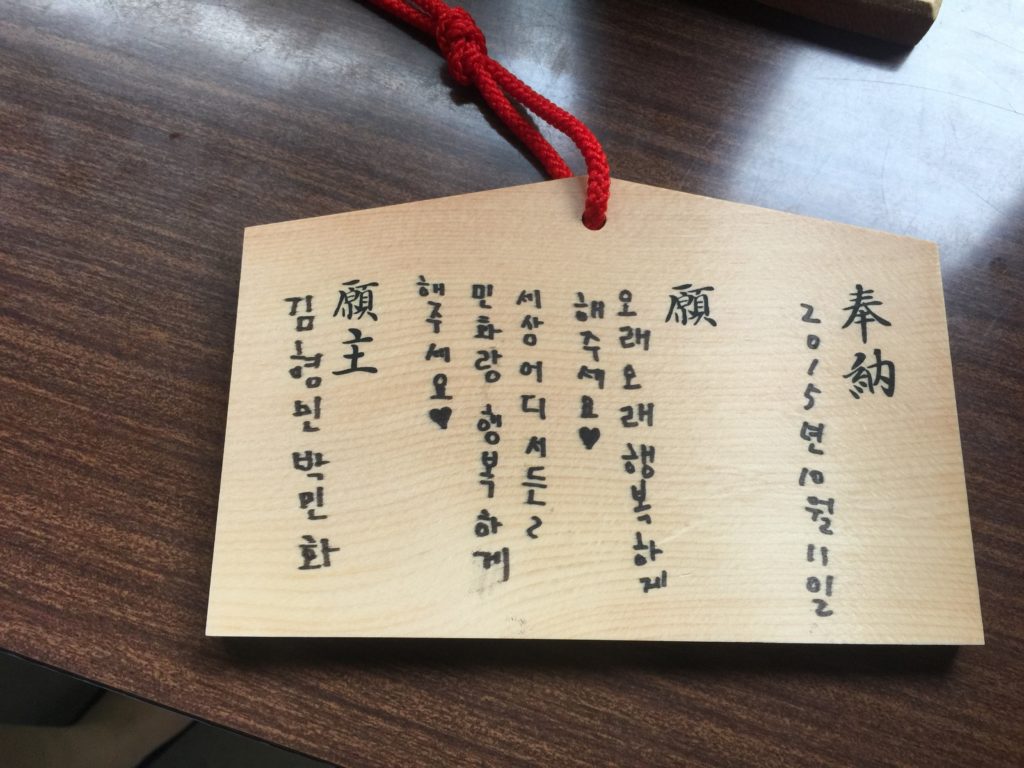 奉納
2015년 10월 11일
願
오래오래 행복하게
해주세요♥
세상 어디서든 2
민화랑 행복하게
해주세요♥
願主
김형민 박민화